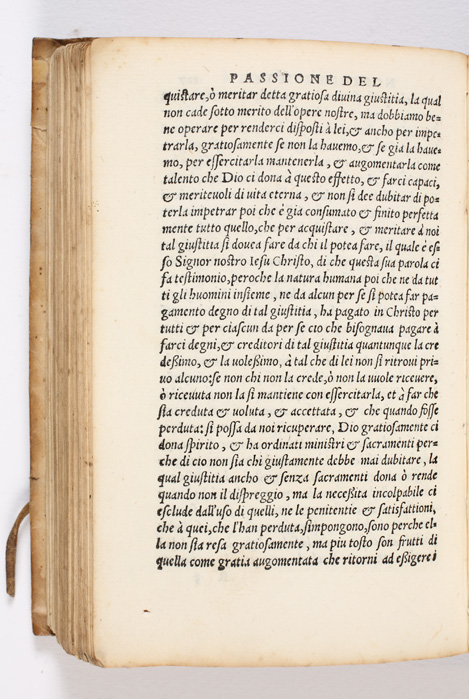 PASSIONE DEL
quistare, ò meritar detta gratiosa diuina giustitia, la qual
non cade sotto merito dell'opere nostre, ma dobbiamo be-
ne operare per renderci disposti à lei, & ancho per impe-
trarla, gratiosamente se non la hauemo, & se gia la haue-
mo, per essercitarla mantenerla, & augomentarla come
talento che Dio ci dona à questo effetto, & farci capaci,
& meriteuoli di uita eterna, & non si dee dubitar di po-
terla impetrar poi che è gia consumato & finito perfetta
mente tutto quello, che per acquistare, & meritare à noi
tal giustitia si douea fare da chi il potea fare, il quale è es-
so Signor nostro Iesu Christo, di che questa sua parola ci
fa testimonio, peroche la natura humana poi che ne da tut
ti gli huomini insieme, ne da alcun per se si potea far pa-
gamento degno di tal giustitia, ha pagato in Christo per
tutti & per ciascun da per se cio che bisognaua pagare à
farci degni, & creditori di tal giustitia quantunque la cre
deßimo, & la uoleßimo, à tal che di lei non si ritroui pri-
uo alcuno: se non chi non la crede, ò non la uuole riceuere,
ò riceuuta non la si mantiene con essercitarla, et à far che
sia creduta & uoluta, & accettata, & che quando fosse
perduta: si possa da noi ricuperare, Dio gratiosamente ci
dona spirito, & ha ordinati ministri & sacramenti per-
che di cio non sia chi giustamente debbe mai dubitare, la
qual giustitia ancho & senza sacramenti dona ò rende
quando non il dispreggio, ma la neceßita incolpabile ci
esclude dall'uso di quelli, ne le penitentie & satisfattioni,
che à quei, che l'han perduta, simpongono, sono perche el-
la non sia resa gratiosamente, ma piu tosto son frutti di
quella come gratia augomentata che ritorni ad eßigere i